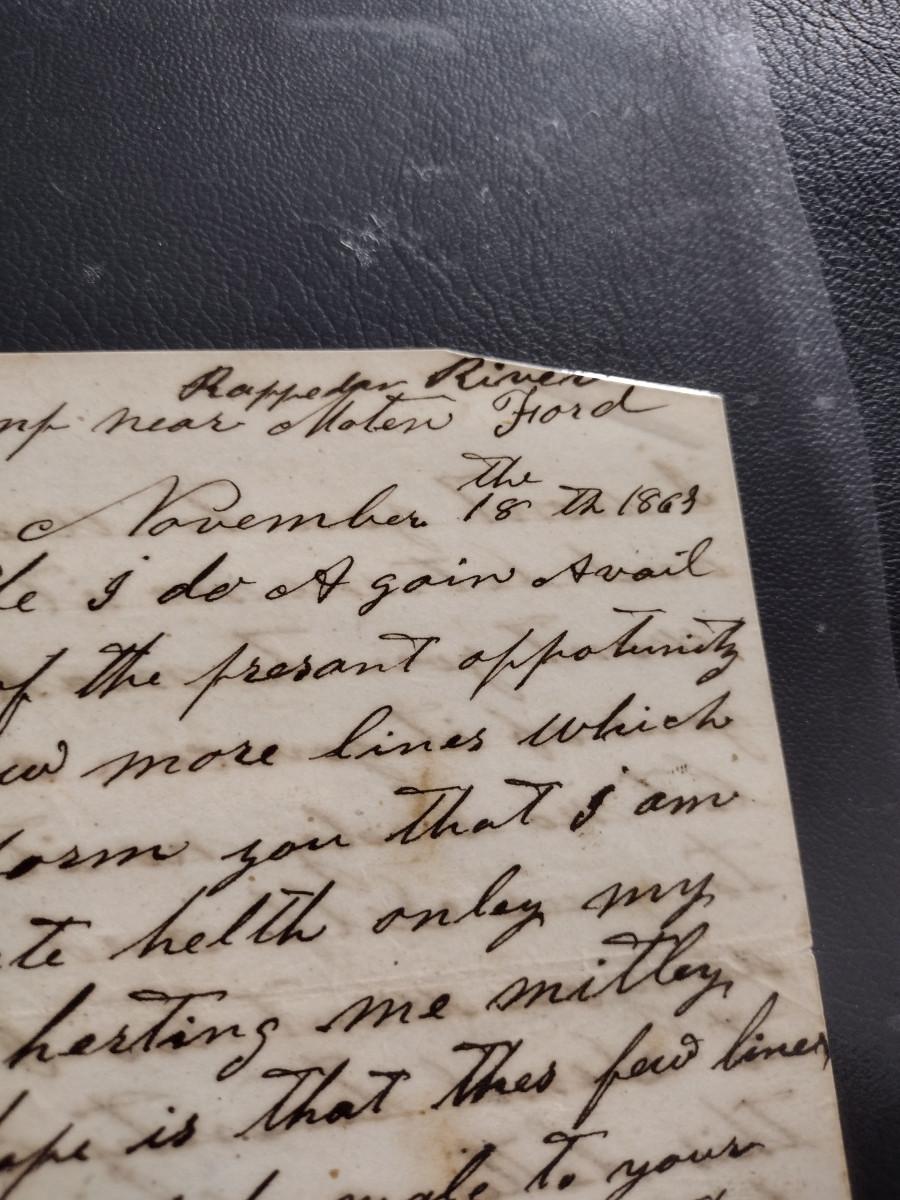 Rappedan River
mp near Moten Ford
November the 18 th 1863
le I do A gain Avail
of the presant oppotunity
ew more lines which
form you that I am
te helth onley my
herting me mitley
ope is that thes few lines
to your